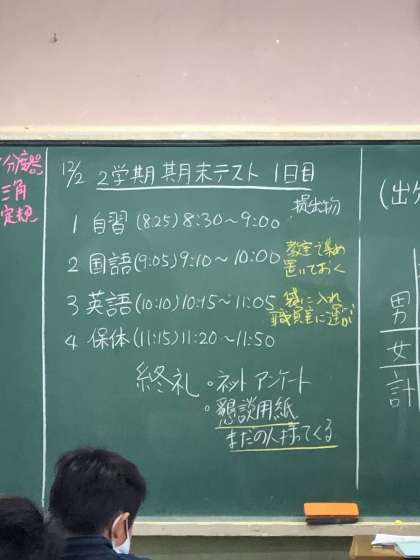 分度器
三角
定規
12/2 2学期 期末テスト 1日目
提出物
1 自習 (8:25) 8:30～9:00
2 国語 (9:05) 9:10～10:00
教室で集め
置いておく
3 英語 (10:10) 10:15～11:05
袋に入れ
職員室に運ぶ
4 保体 (11:15) 11:20～11:50
終礼 ・ネットアンケート
・懇談用紙
まだの人持ってくる
(出欠
男
女
計